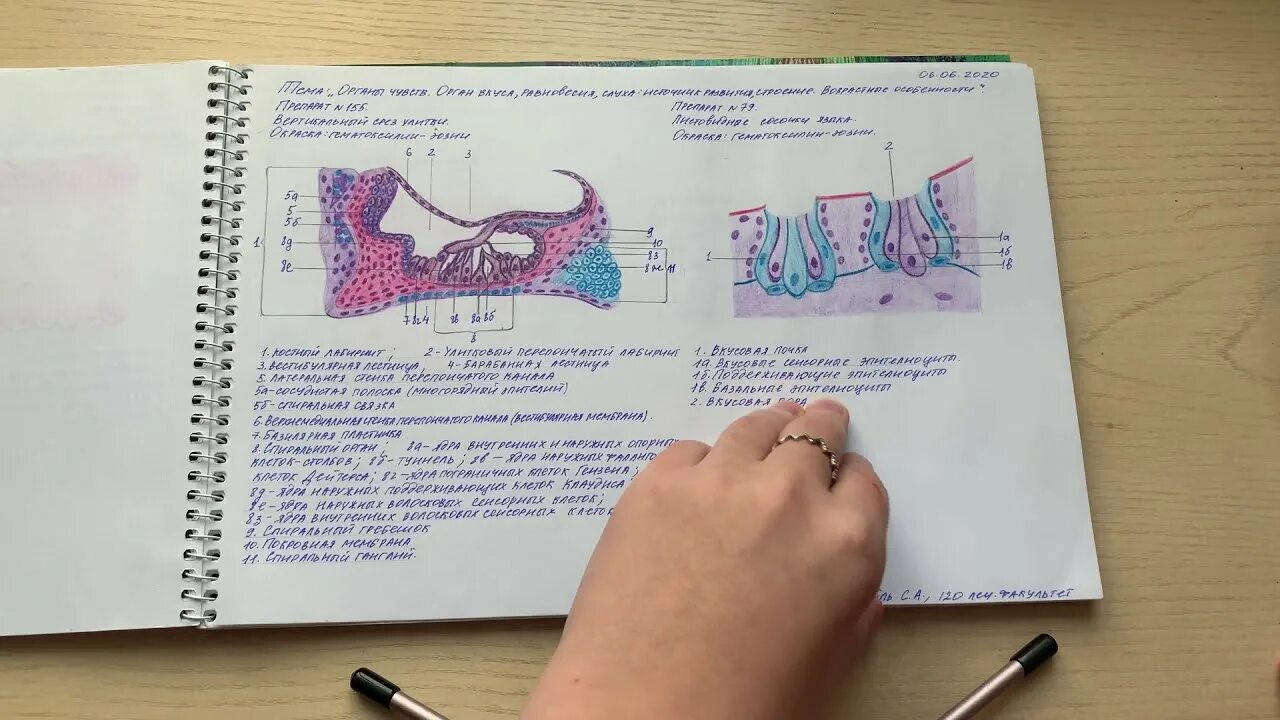 06.06.2020
Тема: „Органы чувств. Орган вкуса, равновесия, слуха: источник развития, строение. Возрастные особенности".
Препарат №155.
Вертикальный срез улитки.
Окраска: гематоксилин-эозин
Препарат №79.
Листовидные сосочки языка.
Окраска: гематоксилин-эозин.
6 2 3
5а
5
5б
8д
1
8е
9
10
8з
8ж 11
7 8г 4 8в 8а 8б
8
2
1
1а
1б
1в
1. Костный лабиринт; 2- Улитковый перепончатый лабиринт
3. Вестибулярная лестница, 4- Барабанная лестница
5. Латеральная стенка перепончатого канала
5а-сосудистая полоска (многорядный эпителий)
5б-спиральная связка
6. Верхнемедиальная стенка перепончатого канала (вестибулярная мембрана).
7. Базилярная пластинка
8. Спиральный орган; 8а- ядра внутренних и наружных опорных
клеток-столбов; 8б- туннель; 8в - ядра наружных фаланго
клеток Дейтерса; 8г -ядра пограничных клеток Гензена;
8д-ядра наружных поддерживающих клеток Клаудиса;
8е-ядра наружных волосковых сенсорных клеток;
8з-ядра внутренних волосковых сенсорных клеток
9. Спиральный гребешок
10. Покровная мембрана
11. Спиральный ганглий.
1. Вкусовая почка
1а. Вкусовые сенсорные эпителиоциты
1б. Поддерживающие эпителиоциты
1в. Базальные эпителиоциты
2. Вкусовая пора
С.А., 120 леч. факультет